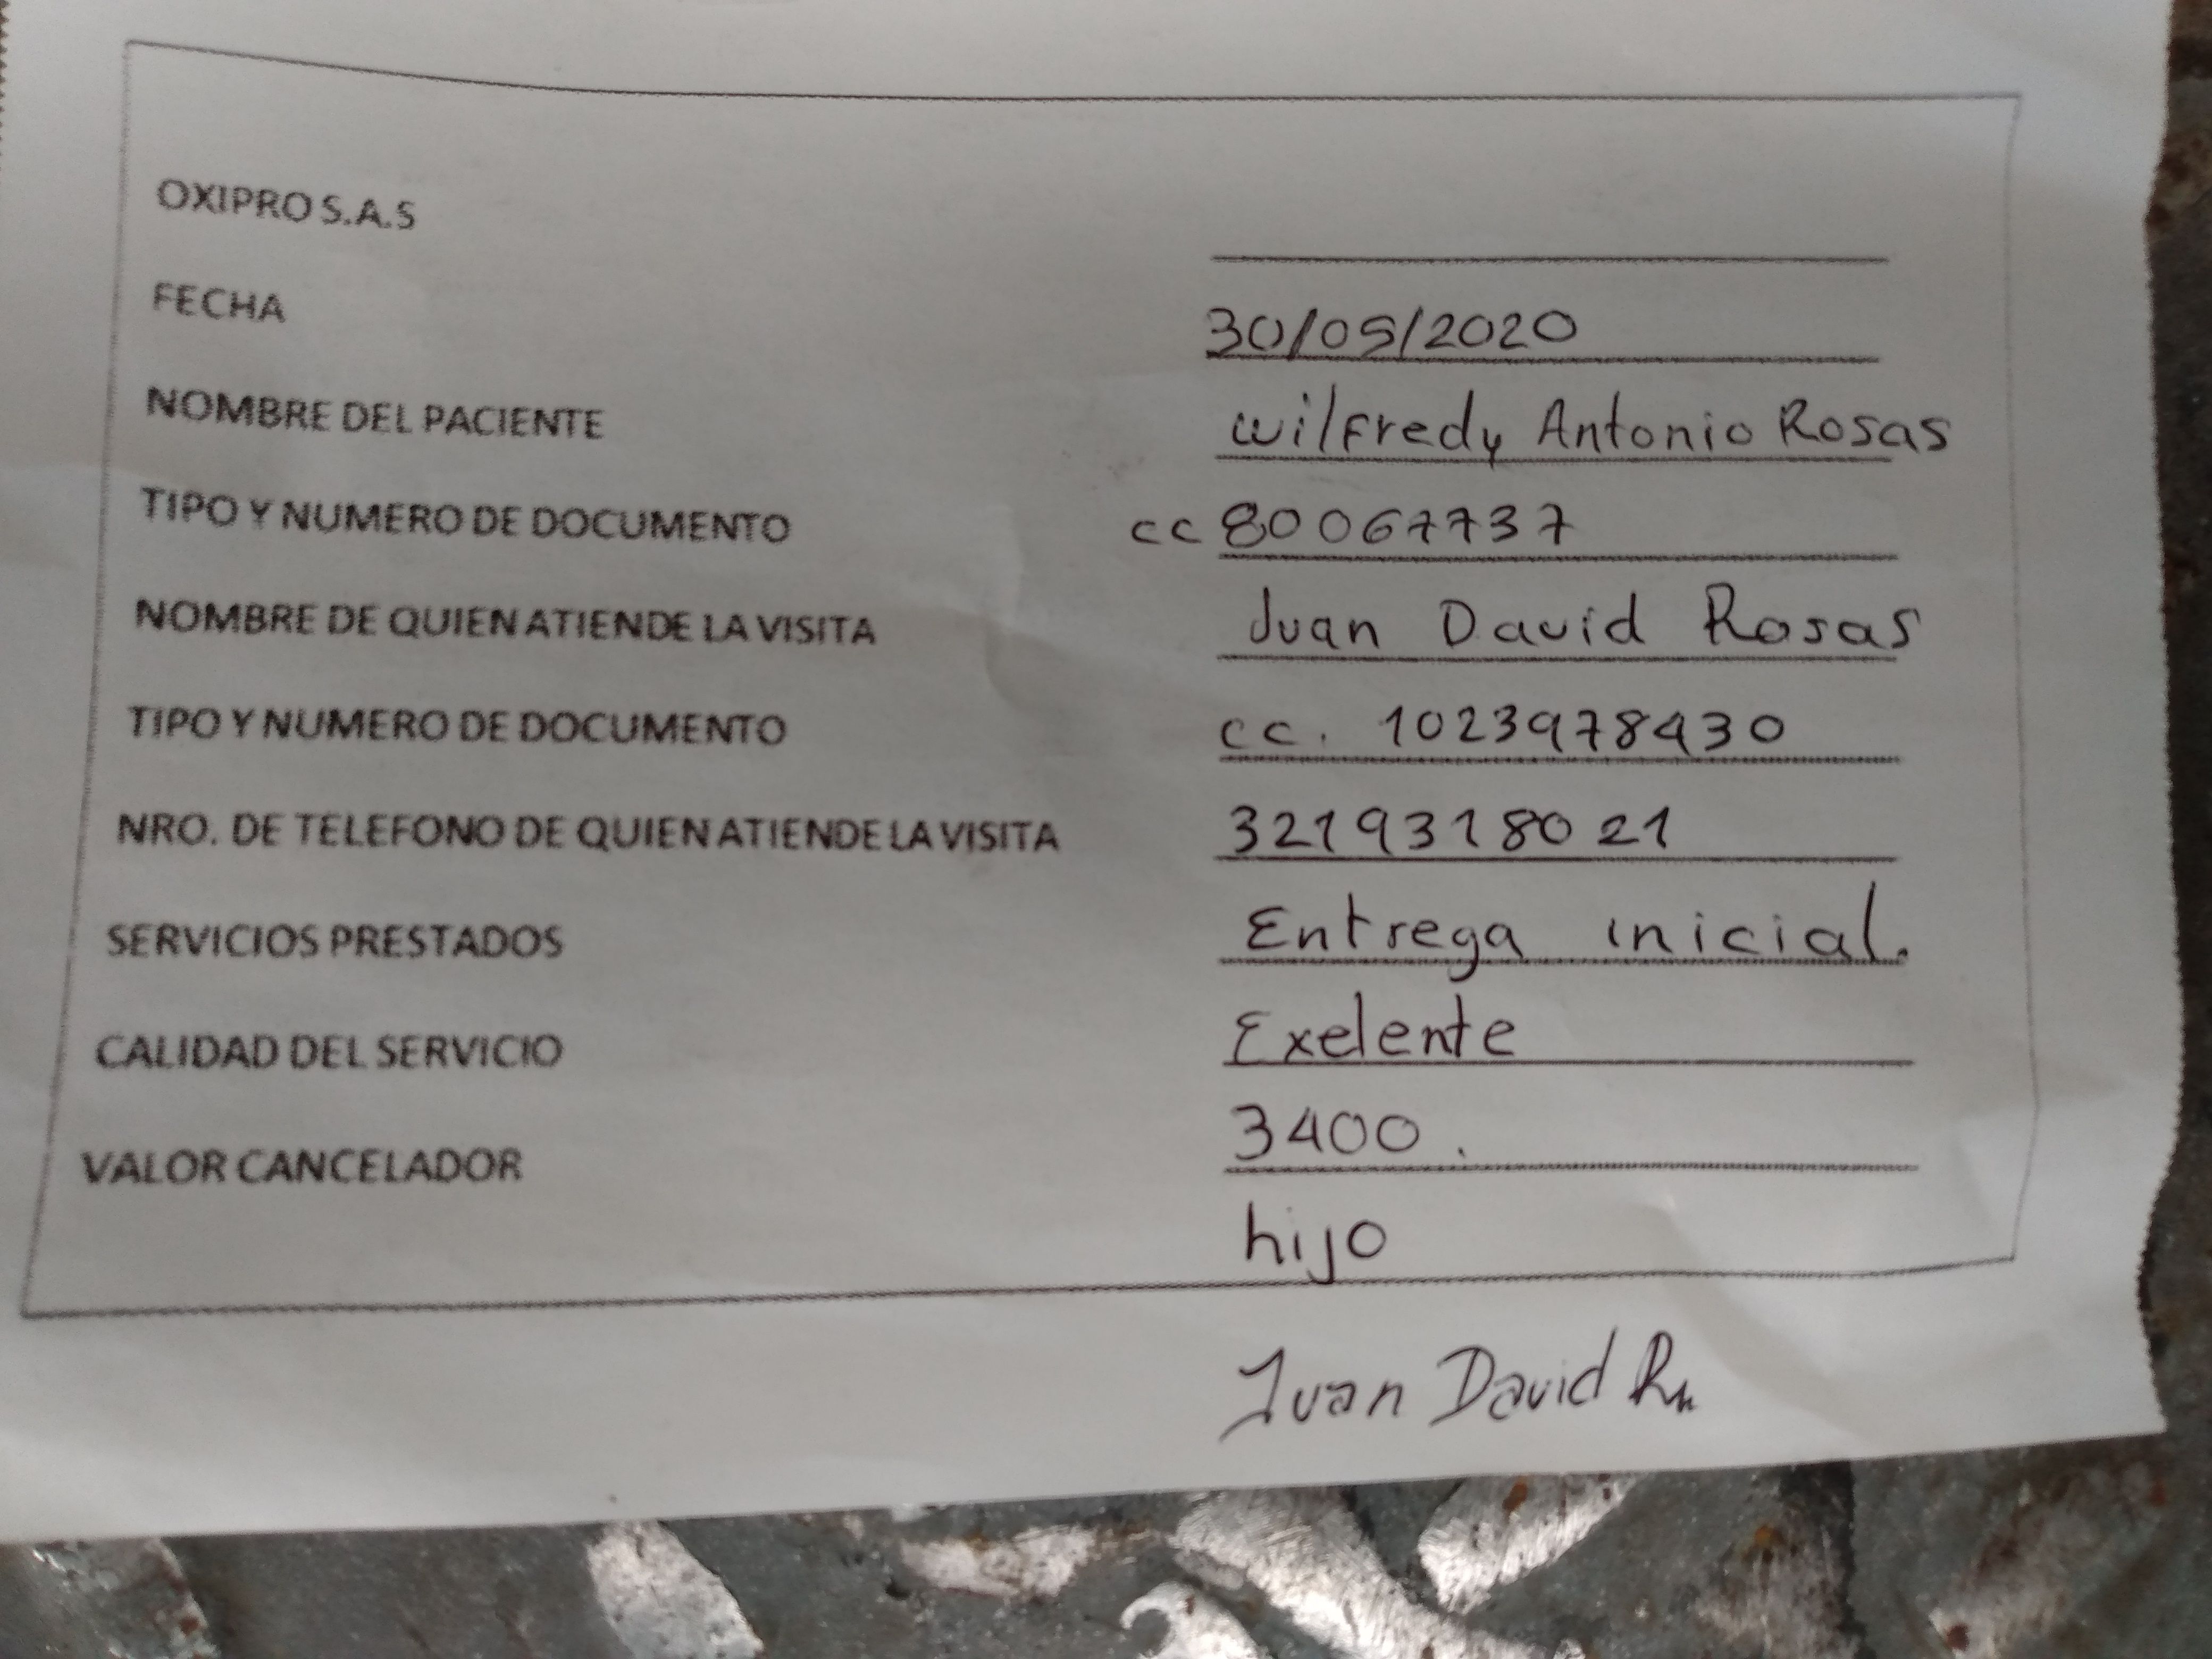 OXIPRO S.A.S
FECHA 30/05/2020
NOMBRE DEL PACIENTE Wilfredy Antonio Rosas
TIPO Y NUMERO DE DOCUMENTO cc 80067737
NOMBRE DE QUIEN ATIENDE LA VISITA Juan David Rosas
TIPO Y NUMERO DE DOCUMENTO cc. 1023978430
NRO. DE TELEFONO DE QUIEN ATIENDE LA VISITA 3219318021
SERVICIOS PRESTADOS Entrega inicial.
CALIDAD DEL SERVICIO Exelente
VALOR CANCELADOR 3400.
hijo
Juan David